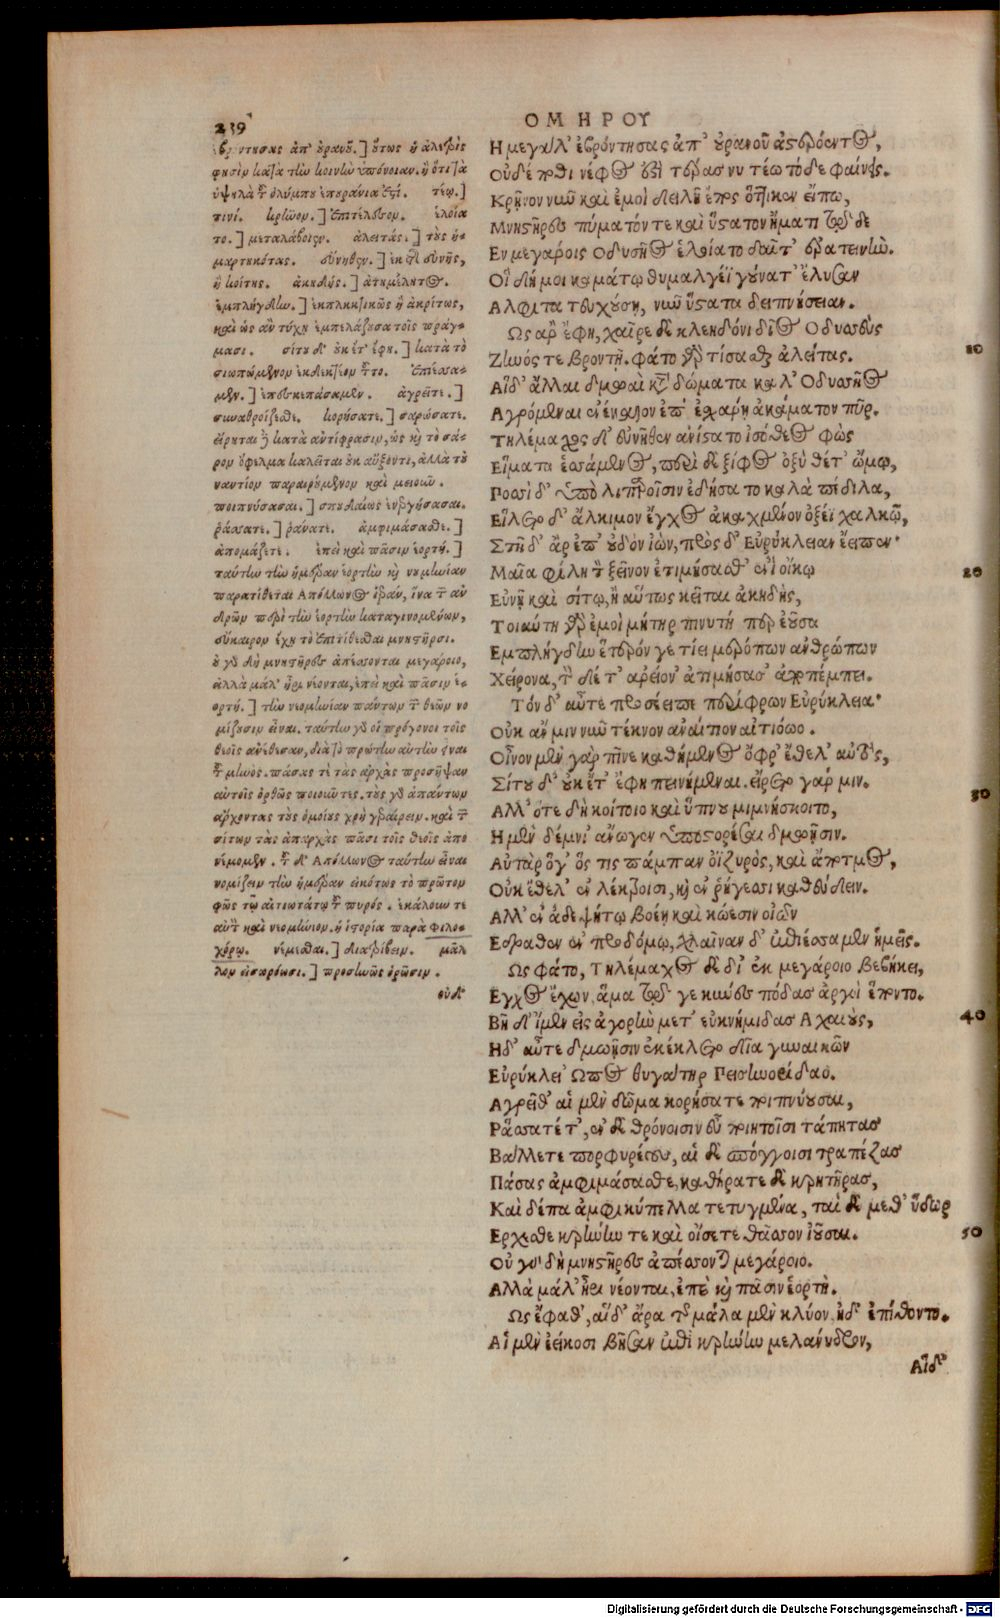 239
ΟΜΗΡΟΥ
ἐβρόντησας ἀπ' οὐρανοῦ.] οὕτως ἢ ἀληθὲς
φησὶν κατὰ τὴν κοινὴν ὑπόνοιαν. ἢ ὅτι τὰ
ὑψηλὰ τοῦ ὀλύμπου ἐπουράνια ἐστί. τέῳ.]
τινί. κρῆνον.] ἐπιτέλεσον. ἑλοία
το.] μεταλάβοιεν. ἀλείτας.] τοὺς ἡ-
μαρτηκότας. εὐνῆθεν.] ἐκ τῆς εὐνῆς,
ἢ κοίτης. ἀκηδὴς.] ἀτημέλητος.
ἐμπλήγδην.] ἐκπληκτικῶς ἢ ἀκρίτως,
καὶ ὡς ἂν τύχῃ ἐμπελάζουσα τοῖς πράγ-
μασι. σίτου δ' οὐκέτ' ἔφη.] κατὰ τὸ
σιωπώμενον ἐκδεκτέον τοῦτο. ἐπιεσσα-
μεν.] ἐπεσκεπάσαμεν. ἀγρεῖτε.]
συναθροίζεσθε. κορήσατε.] σαρώσατε.
εἴρηται δὲ κατὰ ἀντίφρασιν, ὡς καὶ τὸ σά-
ρον ὄφελμα καλεῖται οὐκ αὔξοντι, ἀλλὰ τοὐ
ναντίον παραιρούμενον καὶ μειοῦν.
ποιπνύσασαι.] σπουδαίως ἐνεργήσασαι.
ῥάσσατε.] ῥάνατε. ἀμφιμάσασθε.]
ἀπομάξετε. ἐπεὶ καὶ πᾶσιν ἑορτή.]
ταύτην τὴν ἡμέραν ἑορτὴν καὶ νουμηνίαν
παρατίθεται Ἀπόλλωνος ἱεράν, ἵνα τῶν ἀν
δρῶν περὶ τὴν ἑορτὴν καταγινομένων,
εὔκαιρον ἔχῃ τὸ ἐπιτίθεσθαι μνηστῆρσι.
οὐ γὰρ δὴ μνηστῆρες ἀπέσσονται μεγάροιο,
ἀλλὰ μάλ' ἦρι νέονται, ἐπεὶ καὶ πᾶσιν ἑ-
ορτή.] τὴν νεομηνίαν πάντων τῶν θεῶν νο
μίζουσιν εἶναι. ταύτην γὰρ οἱ πρόγονοι τοῖς
θεοῖς ἀνέθεσαν, διὰ τὸ πρώτην αὐτὴν εἶναι
τοῦ μηνός. πάσας τε τὰς ἀρχὰς προσῆψαν
αὐτοῖς ὀρθῶς ποιοῦντες. τοὺς γὰρ ἁπάντων
ἄρχοντας τοὺς ὁμοίους χρὴ γεραίρειν. καὶ τῶν
σίτων τὰς ἀπαρχὰς πᾶσι τοῖς θεοῖς ἀπο
νέμομεν. τοῦ δ' Ἀπόλλωνος ταύτην εἶναι
νομίζειν τὴν ἡμέραν εἰκότως τὸ πρῶτον
φῶς τῷ αἰτιωτάτῳ τοῦ πυρός. ἐκάλουν τε
αὐτὸν καὶ νεομήνιον. ἡ ἱστορία παρὰ Φιλο-
χόρῳ. νέμεσθαι.] διατρίβειν. μᾶλ
λον εἰσορόωσι.] προσηνῶς ὁρῶσιν.
οὐδ'
Η μεγάλ' ἐβρόντησας ἀπ' οὐρανοῦ ἀστερόεντος,
Οὐδέ ποθι νέφος ἐστί· τέρας νυ τέῳ τόδε φαίνεις.
Κρῆνον νῦν καὶ ἐμοὶ δειλῇ ἔπος ὅττικεν εἴπω,
Μνηστῆρες πύματόν τε καὶ ὕστατον ἤματι τῷδε
Εν μεγάροις Οδυσῆος ἑλοίατο δαῖτ' ἐρατεινήν.
Οἳ δή μοι καμάτῳ θυμαλγέϊ γούνατ' ἔλυσαν
Αλφιτα τευχούσῃ, νῦν ὕστατα δειπνήσειαν.
Ως ἄρ' ἔφη, χαῖρε δὲ κλεηδόνι δῖος Οδυσσεὺς
Ζηνός τε βροντῇ. φάτο γὰρ τίσασθαι ἀλείτας. 10
Αἱ δ' ἄλλαι δμωαὶ κατὰ δώματα καλ' Οδυσῆος
Αγρόμεναι ἐνέκαιον ἐπ' ἐσχάρῃ ἀκάματον πῦρ.
Τηλέμαχος δ' εὐνῆθεν ἀνίστατο ἰσόθεος φὼς
Εἵματα ἑσσάμενος, περὶ δὲ ξίφος ὀξὺ θέτ' ὤμῳ,
Ποσσὶ δ' ὑπὸ λιπαροῖσιν ἐδήσατο καλὰ πέδιλα,
Εἵλετο δ' ἄλκιμον ἔγχος ἀκαχμένον ὀξέϊ χαλκῷ,
Στῆ δ' ἄρ ἐπ' οὐδὸν ἰὼν, πρὸς δ' Εὐρύκλειαν ἔειπεν·
Μαῖα φίλη τὸν ξεῖνον ἐτιμήσασθ' ἐνὶ οἴκῳ 20
Εὐνῇ καὶ σίτῳ, ἢ αὕτως κεῖται ἀκηδὴς,
Τοιαύτη γὰρ ἐμοὶ μήτηρ πινυτή περ ἐοῦσα
Εμπλήγδην ἕτερόν γε τίει μερόπων ἀνθρώπων
Χείρονα, τὸν δέ τ' ἀρείον' ἀτιμήσασ' ἀποπέμπει.
Τὸν δ' αὖτε προσέειπε περίφρων Εὐρύκλεια·
Οὐκ ἄν μιν νῦν τέκνον ἀναίτιον αἰτιόῳο.
Οἶνον μὲν γὰρ πῖνε καθήμενος ὄφρ' ἔθελ' αὐτὸς,
Σίτου δ' οὐκέτ' ἔφη πεινήμεναι. εἴρετο γάρ μιν. 30
Αλλ' ὅτε δὴ κοίτοιο καὶ ὕπνου μιμνήσκοιτο,
Η μὲν δέμνι' ἄνωγεν ὑποστορέσαι δμωῇσιν.
Αὐτὰρ ὅγ' ὥς τις πάμπαν ὀϊζυρὸς, καὶ ἄποτμος,
Οὐκ ἔθελ' ἐν λέκτροισι, καὶ ἐν ῥήγεσσι καθεύδειν.
Αλλ' ἐν ἀδεψήτῳ βοέῃ καὶ κώεσιν οἰῶν
Εδραθεν ἐν προδόμῳ, χλαῖναν δ' ἐπιέσσαμεν ἡμεῖς.
Ως φάτο, Τηλέμαχος δὲ δι' ἐκ μεγάροιο βεβήκει,
Εγχος ἔχων, ἅμα τῷδε γε κύνες πόδας ἀργοὶ ἕποντο.
Βῆ δ' ἴμεν εἰς ἀγορὴν μετ' εὐκνήμιδας Αχαιοὺς, 40
Ηδ' αὖτε δμωῇσιν ἐκέκλετο δῖα γυναικῶν
Εὐρύκλει' Ωπος θυγάτηρ Πεισηνορίδαο.
Αγρεῖθ' αἱ μὲν δῶμα κορήσατε ποιπνύουσαι,
Ράσσατέ τ', ἐν δὲ θρόνοισιν εὐποιητοῖσι τάπητας
Βάλλετε πορφυρέους, αἱ δὲ σπόγγοισι τραπέζας
Πάσας ἀμφιμάσασθε, καθήρατε δὲ κρητῆρας,
Καὶ δέπα ἀμφικύπελλα τετυγμένα, ταὶ δὲ μεθ' ὕδωρ
Ερχεσθε κρήνην τε καὶ οἴσετε θᾶσσον ἰοῦσαι. 50
Οὐ γὰρ δὴν μνηστῆρες ἀπέσσονται μεγάροιο.
Αλλὰ μάλ' ἦρι νέονται, ἐπεὶ καὶ πᾶσιν ἑορτὴ.
Ως ἔφαθ', αἱ δ' ἄρα τῆς μάλα μὲν κλύον, ἠδ' ἐπίθοντο.
Αἱ μὲν ἐείκοσι βῆσαν ἐπὶ κρήνην μελάνυδρον,
Αἱ δ'
Digitalisierung gefördert durch die Deutsche Forschungsgemeinschaft - DFG